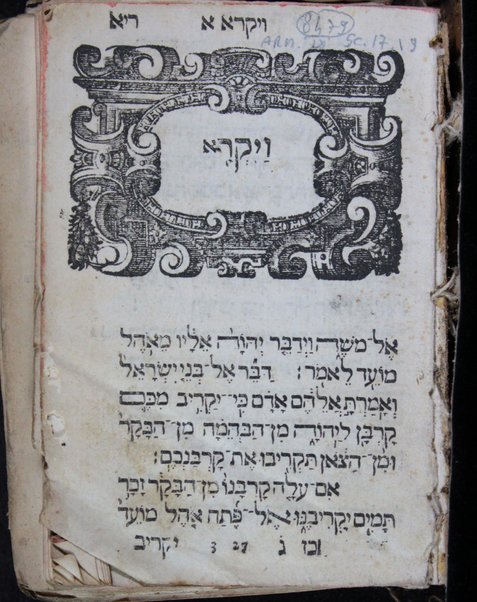 ויקרא א ריא
8479
ARM. IX SC. 17. 19
וַיִּקְרָא
אֶל־מֹשֶׁה וַיְדַבֵּר יְהוָֹה אֵלָיו מֵאֹהֶל
מוֹעֵד לֵאמֹר׃ דַּבֵּר אֶל־בְּנֵי יִשְׂרָאֵל
וְאָמַרְתָּ אֲלֵהֶם אָדָם כִּי־יַקְרִיב מִכֶּם
קָרְבָּן לַיהוָֹה מִן־הַבְּהֵמָה מִן־הַבָּקָר
וּמִן־הַצֹּאן תַּקְרִיבוּ אֶת־קָרְבַּנְכֶם׃
אִם־עֹלָה קָרְבָּנוֹ מִן־הַבָּקָר זָכָר
תָּמִים יַקְרִיבֶנּוּ אֶל־פֶּתַח אֹהֶל מוֹעֵד
כז ג 3 27 יקריב